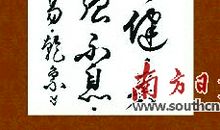 健
强不息
易·乾象
南方日
www.southcn